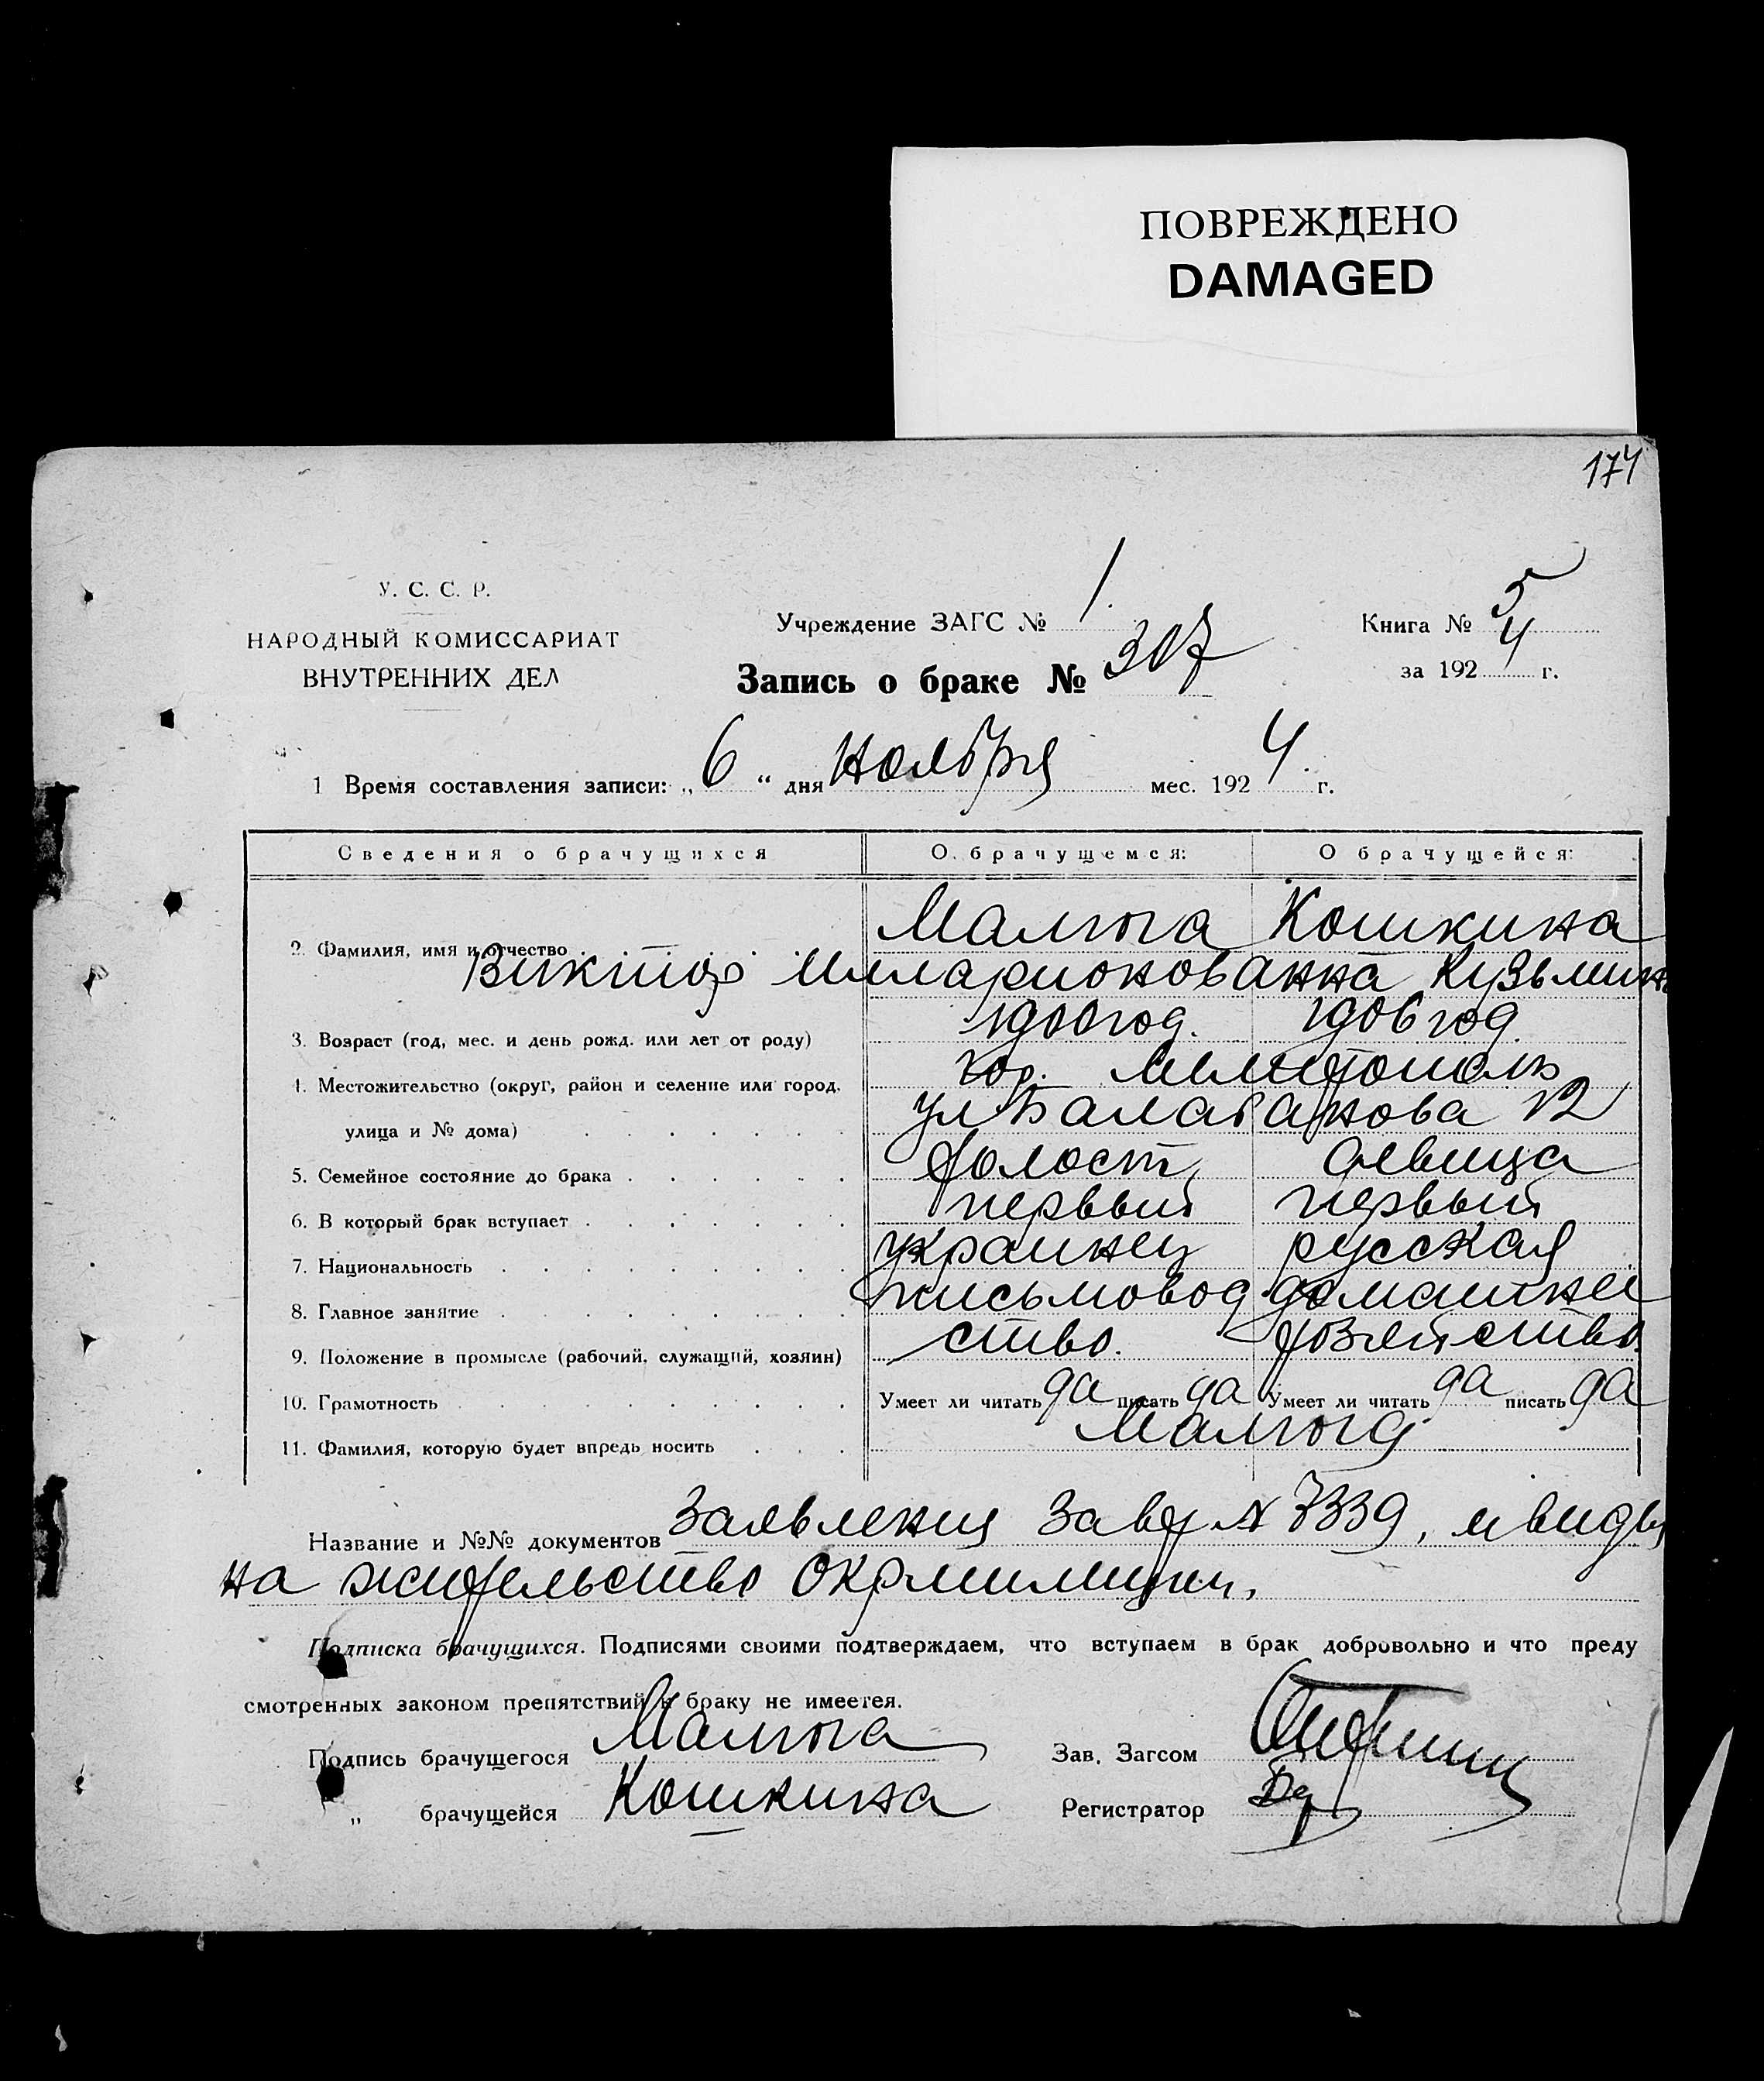 ПОВРЕЖДЕНО
DAMAGED
174
У. С. С. Р.
НАРОДНЫЙ КОМИССАРИАТ
ВНУТРЕННИХ ДЕЛ
Учреждение ЗАГС № 1
Запись о браке № 307
Книга № 5
за 1924 г.
1 Время составления записи: „6“ дня Ноября мес. 1924 г.
Сведения о брачущихся О брачущемся: О брачущейся:
Малюга Кошкина
2. Фамилия, имя и отчество
Виктор Илларионов Анна Кузьмин
3. Возраст (год, мес. и день рожд. или лет от роду) 1900 год. 1906 год
4. Местожительство (округ, район и селение или город, гор. Мелитополь
улица и № дома) ул Балабанова 12
5. Семейное состояние до брака Холост девица
6. В который брак вступает первый первый
7. Национальность украинец русская
8. Главное занятие письмовод домашнее
9. Положение в промысле (рабочий, служащий, хозяин) ство. хозяйство.
10. Грамотность Умеет ли читать да писать да Умеет ли читать да писать да
11. Фамилия, которую будет впредь носить Малюга
Название и №№ документов Заявления Завер № 7339, и виды
на жительство Окрмилиции,
Подписка брачущихся. Подписями своими подтверждаем, что вступаем в брак добровольно и что преду
смотренных законом препятствий к браку не имеется.
Подпись брачущегося Малюга Зав. Загсом
„ брачущейся Кошкина Регистратор